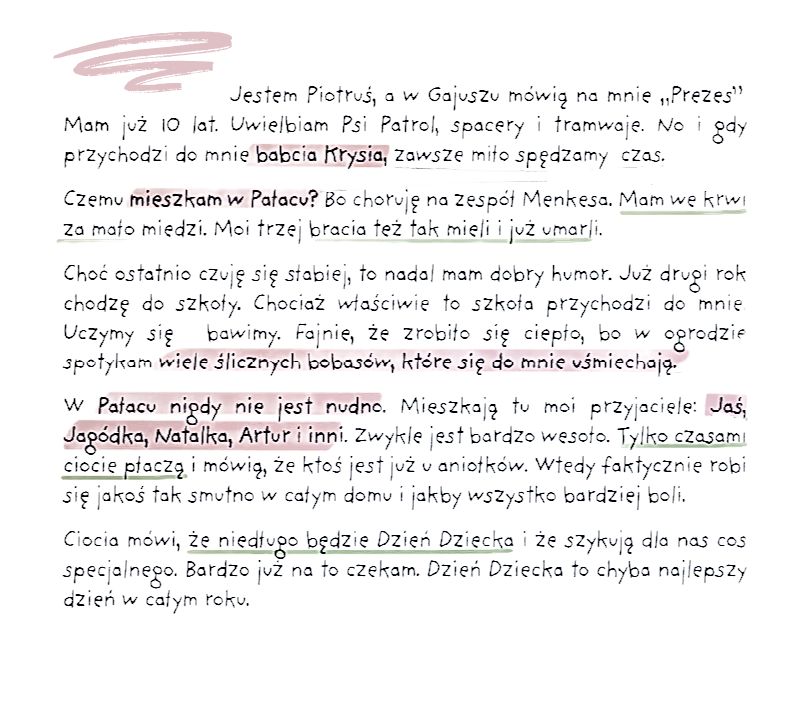 Jestem Piotruś, a w Gajuszu mówią na mnie „Prezes”
Mam już 10 lat. Uwielbiam Psi Patrol, spacery i tramwaje. No i gdy
przychodzi do mnie babcia Krysia, zawsze miło spędzamy czas.
Czemu mieszkam w Pałacu? Bo choruję na zespół Menkesa. Mam we krwi
za mało miedzi. Moi trzej bracia też tak mieli i już umarli.
Choć ostatnio czuję się słabiej, to nadal mam dobry humor. Już drugi rok
chodzę do szkoły. Chociaż właściwie to szkoła przychodzi do mnie.
Uczymy się bawimy. Fajnie, że zrobiło się ciepło, bo w ogrodzie
spotykam wiele ślicznych bobasów, które się do mnie uśmiechają.
W Pałacu nigdy nie jest nudno. Mieszkają tu moi przyjaciele: Jaś,
Jagódka, Natalka, Artur i inni. Zwykle jest bardzo wesoło. Tylko czasami
ciocie płaczą i mówią, że ktoś jest już u aniołków. Wtedy faktycznie robi
się jakoś tak smutno w całym domu i jakby wszystko bardziej boli.
Ciocia mówi, że niedługo będzie Dzień Dziecka i że szykują dla nas cos
specjalnego. Bardzo już na to czekam. Dzień Dziecka to chyba najlepszy
dzień w całym roku.